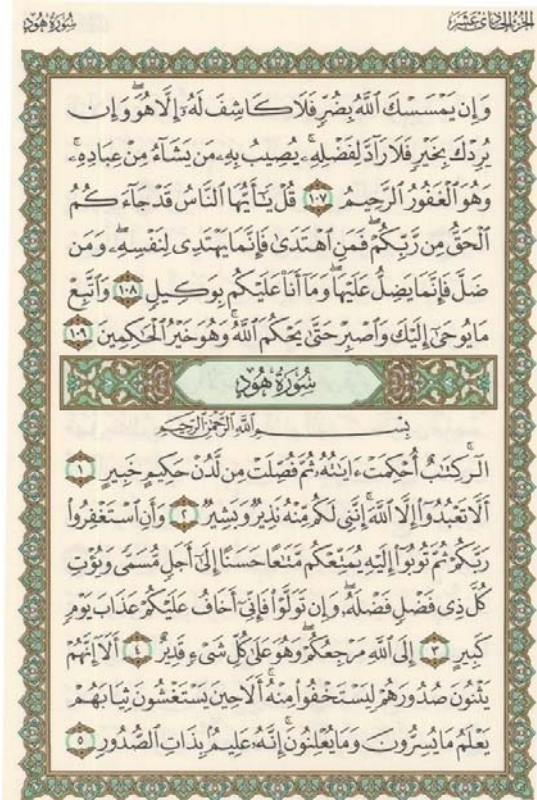 سُورَةُ هُودٍ
الجُزْءُ الحَادِيَ عَشَرَ
وَإِن يَمْسَسْكَ ٱللَّهُ بِضُرٍّ فَلَا كَاشِفَ لَهُۥٓ إِلَّا هُوَۖ وَإِن
يُرِدْكَ بِخَيْرٍ فَلَا رَآدَّ لِفَضْلِهِۦۚ يُصِيبُ بِهِۦ مَن يَشَآءُ مِنْ عِبَادِهِۦۚ
وَهُوَ ٱلْغَفُورُ ٱلرَّحِيمُ ١٠٧ قُلْ يَٰٓأَيُّهَا ٱلنَّاسُ قَدْ جَآءَكُمُ
ٱلْحَقُّ مِن رَّبِّكُمْۖ فَمَنِ ٱهْتَدَىٰ فَإِنَّمَا يَهْتَدِى لِنَفْسِهِۦۖ وَمَن
ضَلَّ فَإِنَّمَا يَضِلُّ عَلَيْهَاۖ وَمَآ أَنَا۠ عَلَيْكُم بِوَكِيلٍ ١٠٨ وَٱتَّبِعْ
مَا يُوحَىٰٓ إِلَيْكَ وَٱصْبِرْ حَتَّىٰ يَحْكُمَ ٱللَّهُۚ وَهُوَ خَيْرُ ٱلْحَٰكِمِينَ ١٠٩
سُورَةُ هُودٍ
بِسْمِ ٱللَّهِ ٱلرَّحْمَٰنِ ٱلرَّحِيمِ
الٓرۚ كِتَٰبٌ أُحْكِمَتْ ءَايَٰتُهُۥ ثُمَّ فُصِّلَتْ مِن لَّدُنْ حَكِيمٍ خَبِيرٍ ١
أَلَّا تَعْبُدُوٓا۟ إِلَّا ٱللَّهَۚ إِنَّنِى لَكُم مِّنْهُ نَذِيرٌ وَبَشِيرٌ ٢ وَأَنِ ٱسْتَغْفِرُوا۟
رَبَّكُمْ ثُمَّ تُوبُوٓا۟ إِلَيْهِ يُمَتِّعْكُم مَّتَٰعًا حَسَنًا إِلَىٰٓ أَجَلٍ مُّسَمًّى وَيُؤْتِ
كُلَّ ذِى فَضْلٍ فَضْلَهُۥۖ وَإِن تَوَلَّوْا۟ فَإِنِّىٓ أَخَافُ عَلَيْكُمْ عَذَابَ يَوْمٍ
كَبِيرٍ ٣ إِلَى ٱللَّهِ مَرْجِعُكُمْۖ وَهُوَ عَلَىٰ كُلِّ شَىْءٍ قَدِيرٌ ٤ أَلَآ إِنَّهُمْ
يَثْنُونَ صُدُورَهُمْ لِيَسْتَخْفُوا۟ مِنْهُۚ أَلَا حِينَ يَسْتَغْشُونَ ثِيَابَهُمْ
يَعْلَمُ مَا يُسِرُّونَ وَمَا يُعْلِنُونَۚ إِنَّهُۥ عَلِيمٌۢ بِذَاتِ ٱلصُّدُورِ ٥